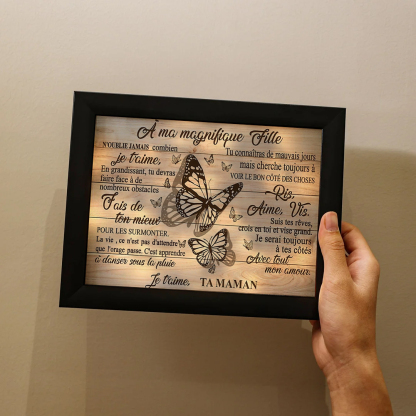 À ma magnifique Fille
N'OUBLIE JAMAIS combien
je t'aime,
En grandissant, tu devras
faire face à de
nombreux obstacles
Fais de
ton mieux
POUR LES SURMONTER.
La vie , ce n'est pas d'attendre
que l'orage passe. C'est apprendre
à danser sous la pluie
Tu connaîtras de mauvais jours
mais cherche toujours à
VOIR LE BON CÔTÉ DES CHOSES
Ris,
Aime, Vis.
Suis tes rêves,
crois en toi et vise grand.
Je serai toujours
à tes côtés
Avec tout
mon amour.
Je t'aime, TA MAMAN